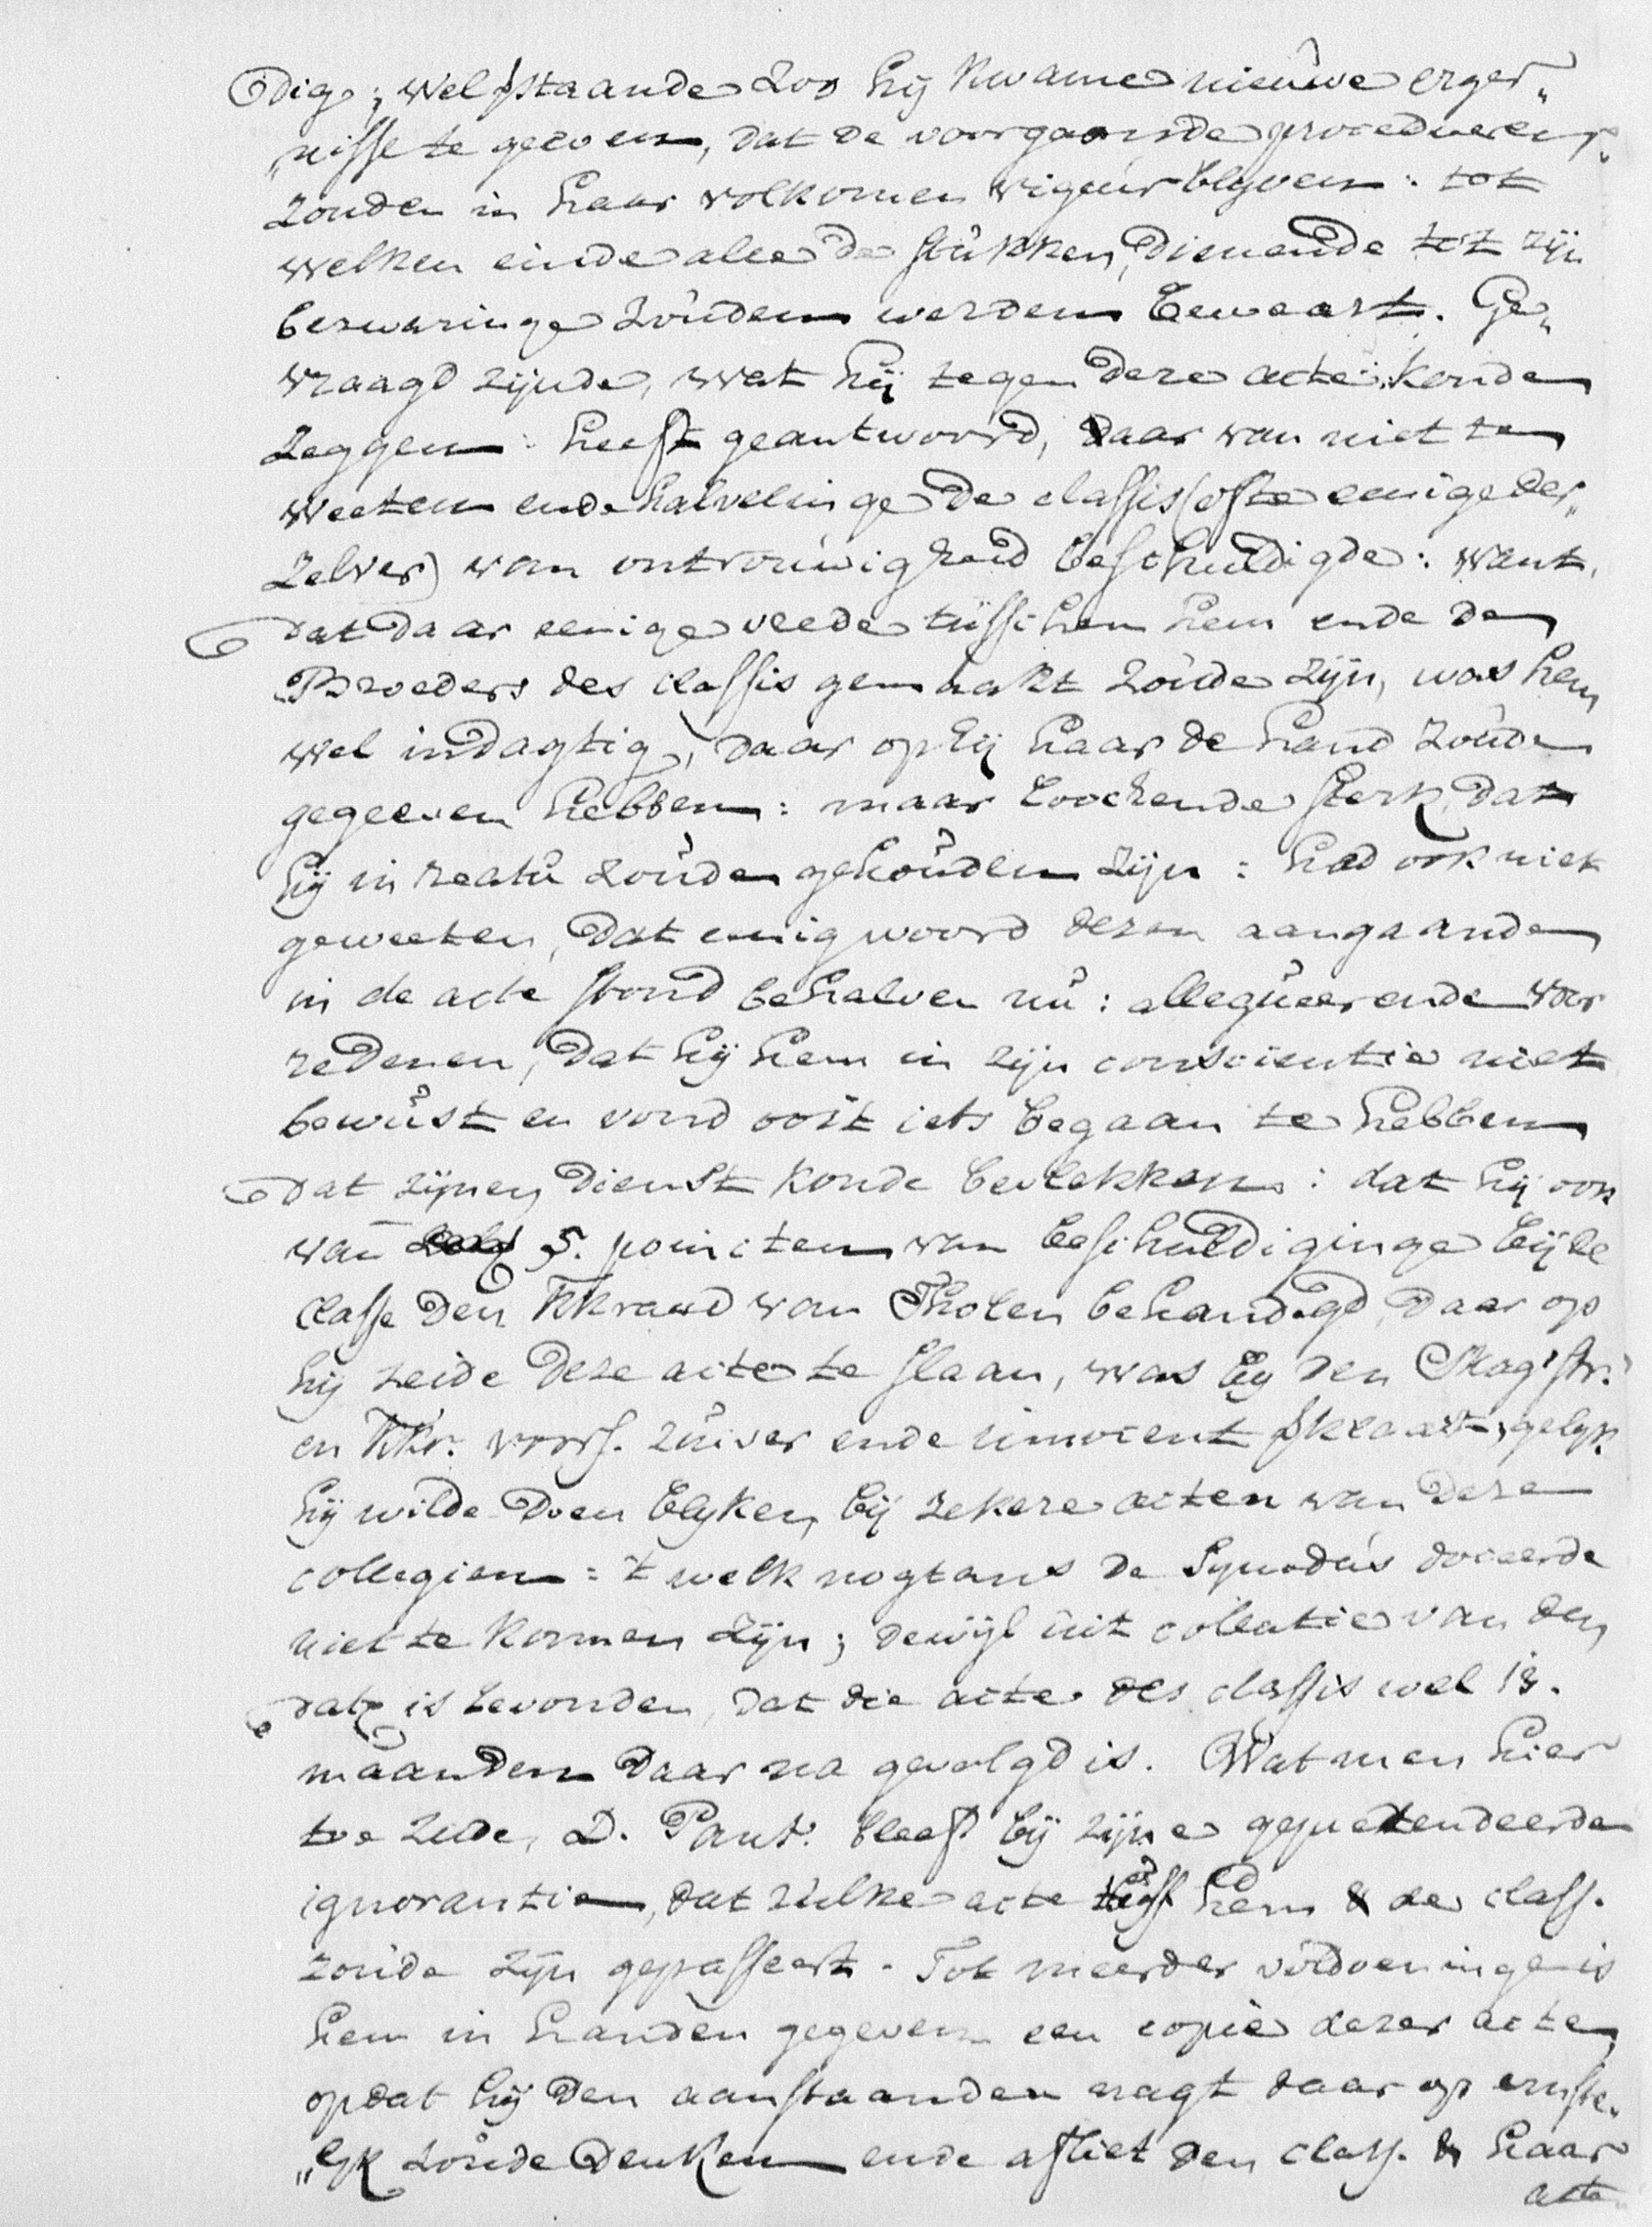 dig; welverstaande zoo hij kwame nieuwe erger„
„nisse te geeven, dat de voorgaande procedueren
zouden in haar volkomen vigeur blyven: tot
welken einde alle de stukken, dienende tot zijn
beswaringe zouden werden bewaart. Ge„
vraagd zijnde, wat hij tegen deze acte konde
zeggen: heeft geantwoord, daar van niet te
weeten ende halvelinge de classis (ofte eenige der„
zelver) van ontrouwigheid beschuldigde: want,
dat daar eenige vrede tusschen hem ende de
Broeders des classis gemaakt zoude zijn, was hem
wel indagtig, daar op hij haar de hand zoude
gegeeven hebben: maar loochende sterk, dat
hij in reatu zoude gehouden zijn: had ook niet
geweeten, dat eenig woord dezen aangaande
in de acte stond behalven nu: allegueerende voor
redenen, dat hij hem in zijn conscientie niet
bewust en vond ooit iets begaan te hebben
dat zijnen dienst konde bevlekken: dat hij ook
van 5. poincten van beschuldiginge bij de
classe den Kkraad van Tholen behandigd, daar op
hij zeide deze acte te slaan, was by den Magistr.
en Kkr. voors. zuiver ende innocent verklaart, gelyk
hij wilde doen blyken bij zekere acten van deze
collegien: 't welk nogtans de Synodus doceerde
niet te konnen zijn; dewijl uit collatie van den
dat̃ is bevonden, dat die acte des classis wel 13.
maanden daar na gevolgd is. Wat men hier
toe zeide, D. Pant. bleef bij zijne gepretendeerde
ignorantie, dat zulke acte tuss. hem & de class.
zoude zijn gepasseert. Tot meerder voldoeninge is
hem in handen gegeven een copie dezer acte,
opdat hij den aanstaanden nagt daar op ernste„
„lyk zoude denken ende afliet den class. & haar
acte